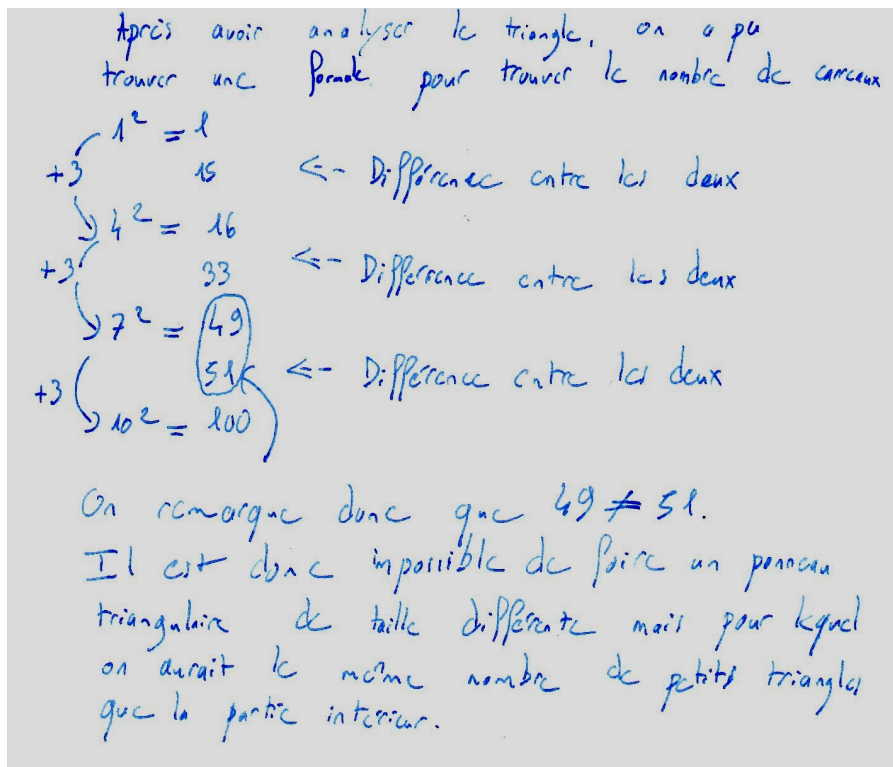 Après avoir analyser le triangle, on a pu
trouver une formule pour trouver le nombre de carreaux
1² = 1
+3 15 <-- Différence entre les deux
4² = 16
+3 33 <-- Différence entre les deux
7² = 49
+3 51 <-- Différence entre les deux
10² = 100
On remarque donc que 49 ≠ 51.
Il est donc impossible de faire un panneau
triangulaire de taille différente mais pour lequel
on aurait le même nombre de petits triangles
que la partie intérieur.